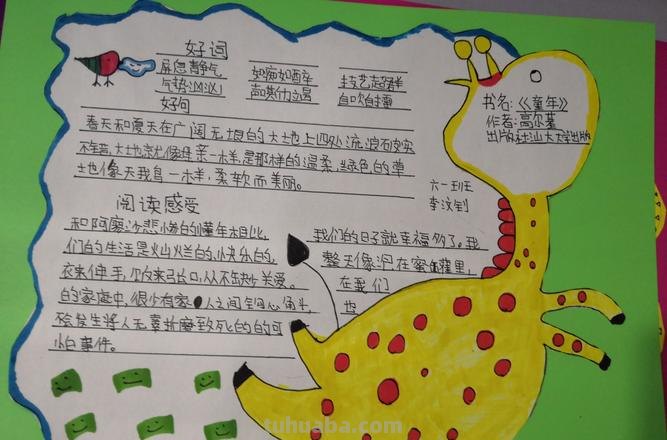 好词
屏息静气 如痴如醉 技艺超群
气势汹汹 声嘶力竭 自吹自擂
好句
春天和夏天在广阔无垠的大地上四处流浪
大地就像母亲一样,是那样的温柔,绿色的草
地像天鹅 一样,柔软而美丽。
阅读感受
和阿廖沙悲惨的童年相比,
们的生活是灿烂的,快乐的,
衣来伸手,饭来张口,从不缺少关爱。
的家庭中,很少有家 人之间勾心斗角,
会发生将人无辜折磨致死的的可
怕事件。
我们的日子就幸福多了。我
整天像泡在蜜罐里,
在我们
也
六一班
李汶钊
书名:《童年》
作者:高尔基
出版社:汕大大学出版
tuhuaba.com